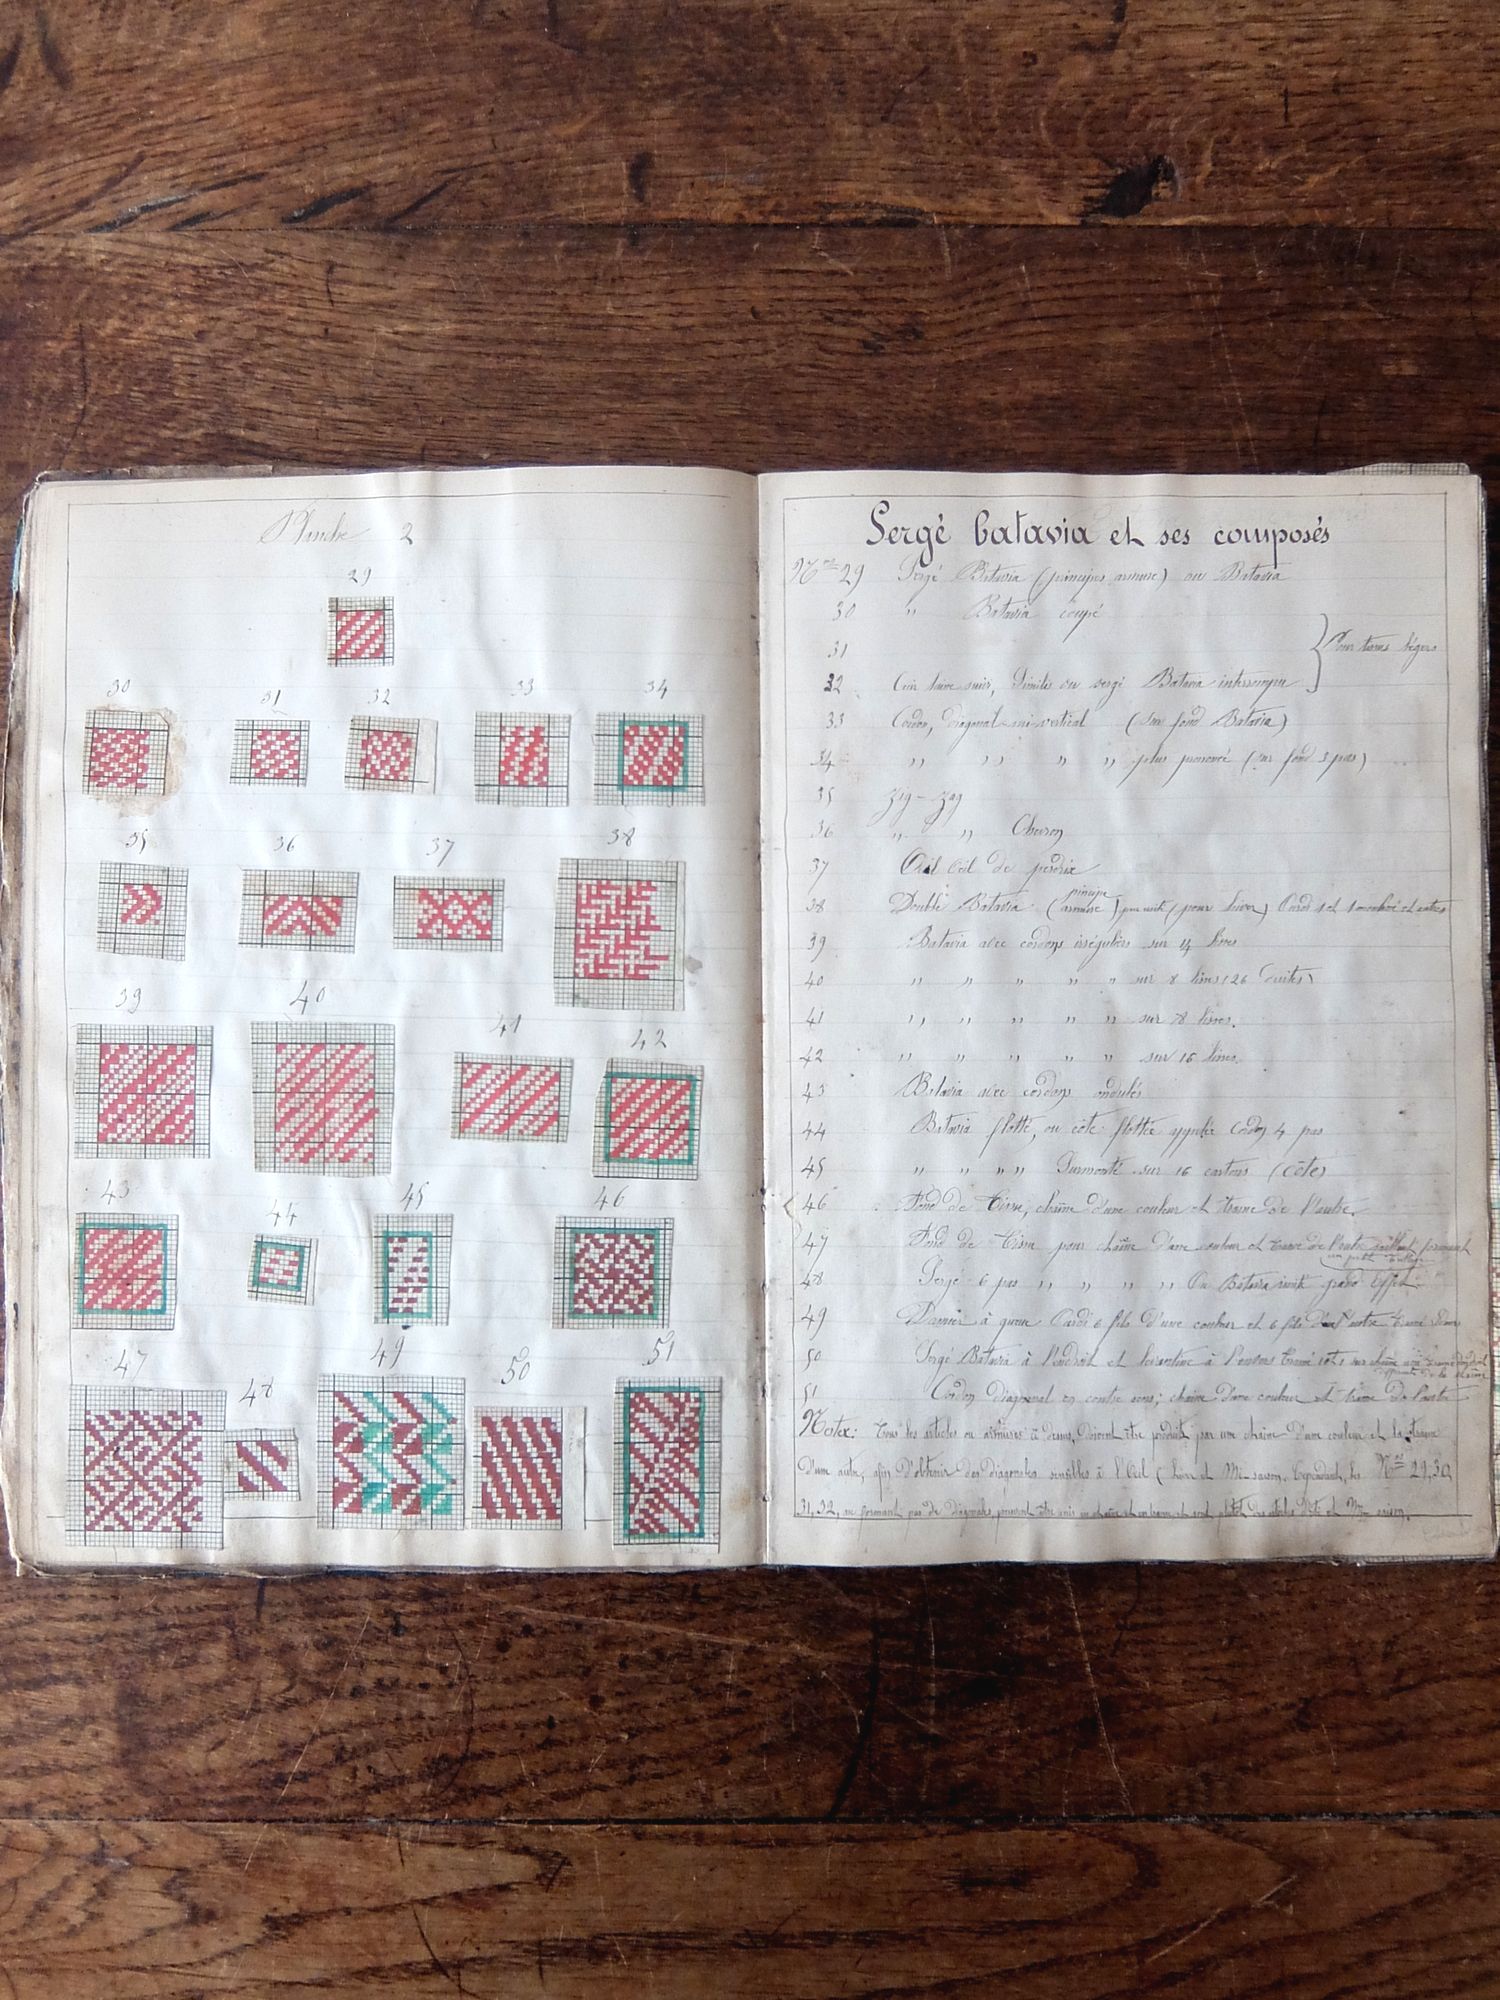 Planche 2
29
30 31 32 33 34
35 36 37 38
39 40 41 42
43 44 45 46
47 48 49 50 51
Sergé batavia et ses composés
Nos 29 Sergé Batavia (principes armure) ou Batavia
30 " Batavia coupé
31
Pour tissus légers
32 Cuir laine suir, Similis ou sergé Batavia interrompu
33 Cordon, diagonal mi-vertical (sur fond Batavia)
34 " " " " plus prononcé (sur fond 3 pas)
35 Zig-Zag
36 " " Chevron
37 Œil de perdrix
principe
38 Double Batavia (armure) (pour hiver) Ourdi 1 et 1
39 Batavia avec cordons irréguliers sur 4 lisses
40 " " " " " sur 8 lisses 26 duites
41 " " " " " sur 8 lisses.
42 " " " " " sur 16 lisses.
43 Batavia avec cordons ondulés
44 Batavia flotté, ou côte flottée Cordon 4 pas
45 " " " " Surmonté sur 16 cartons (côte)
46 Fond de Tissu, chaîne d'une couleur et trame de l'autre.
47 Fond de Tissu pour chaîne d'une couleur et trame de l'autre formant
un petit
48 Sergé 6 pas " " " " Ou Batavia grand Effet
49 Damier à queue Ourdi 6 fils d'une couleur et 6 fils d'une autre Tramé
50 Sergé Batavia à l'endroit et levantine à l'envers tramé 1 et 1 sur chaîne
de la chaîne
51 Cordon diagonal en contre sens; chaîne d'une couleur et trame de l'autre
Notes: Tous les articles ou armures ci dessus, doivent être produits par une chaîne d'une couleur et la trame
d'une autre, afin d'obtenir des diagonales sensibles à l'Œil (hiver et Mi-saison. Cependant, les Nos 29, 30,
31, 32, ne formant pas de diagonales, peuvent être unis en chaîne et en trame et sont plutôt des articles d'été et Mi-saison.